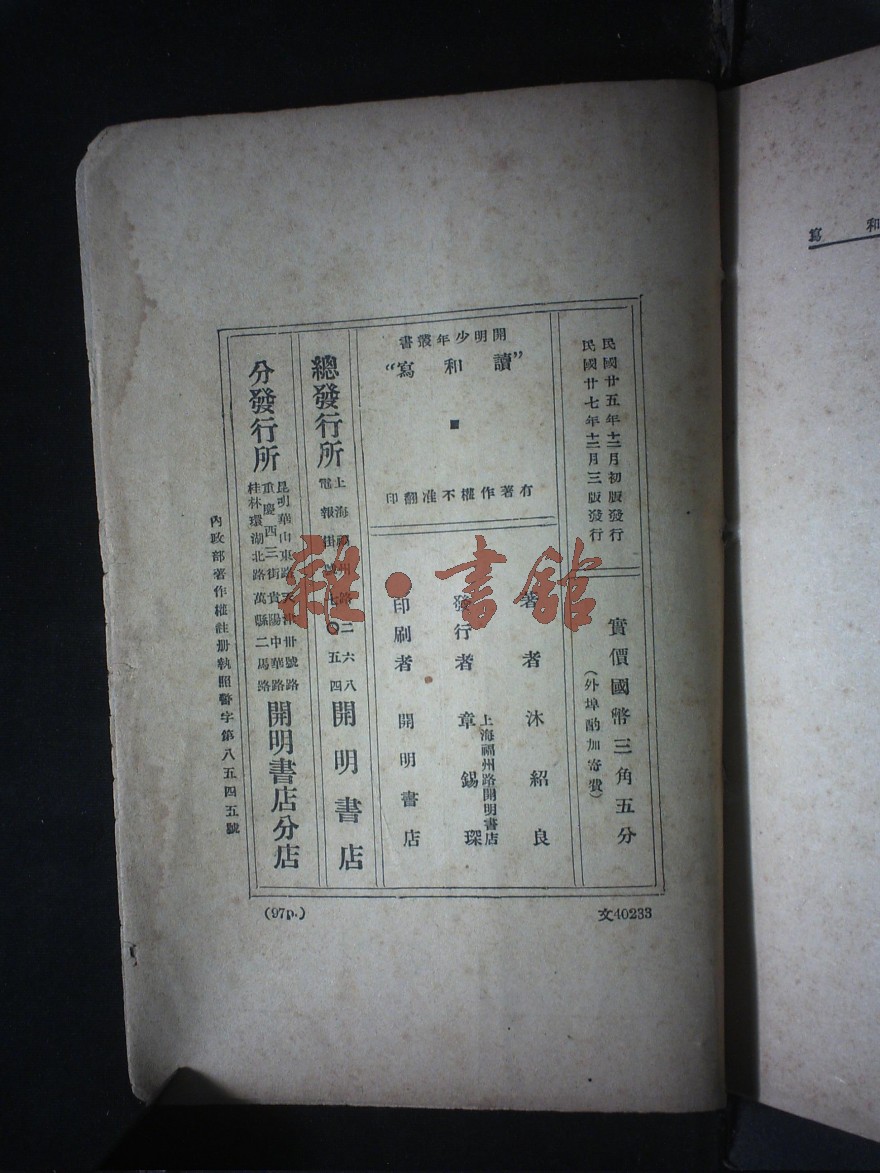 民國廿五年十二月初版發行
民國廿七年十二月三版發行
實價國幣三角五分
(外埠酌加寄費)
開明少年叢書
“讀和寫”
有著作權不准翻印
著者 沐紹良
發行者 章錫琛
上海福州路開明書店
印刷者 開明書店
總發行所
上海福州路二六八
電報掛號七〇五四
開明書店
分發行所
昆明華山東路天津卅號路
重慶西三街貴陽中華路
桂林環湖北路萬縣二馬路
開明書店分店
內政部著作權註册執照警字第八五四五號
(97p.)
文40233
寫 和
雜·書館